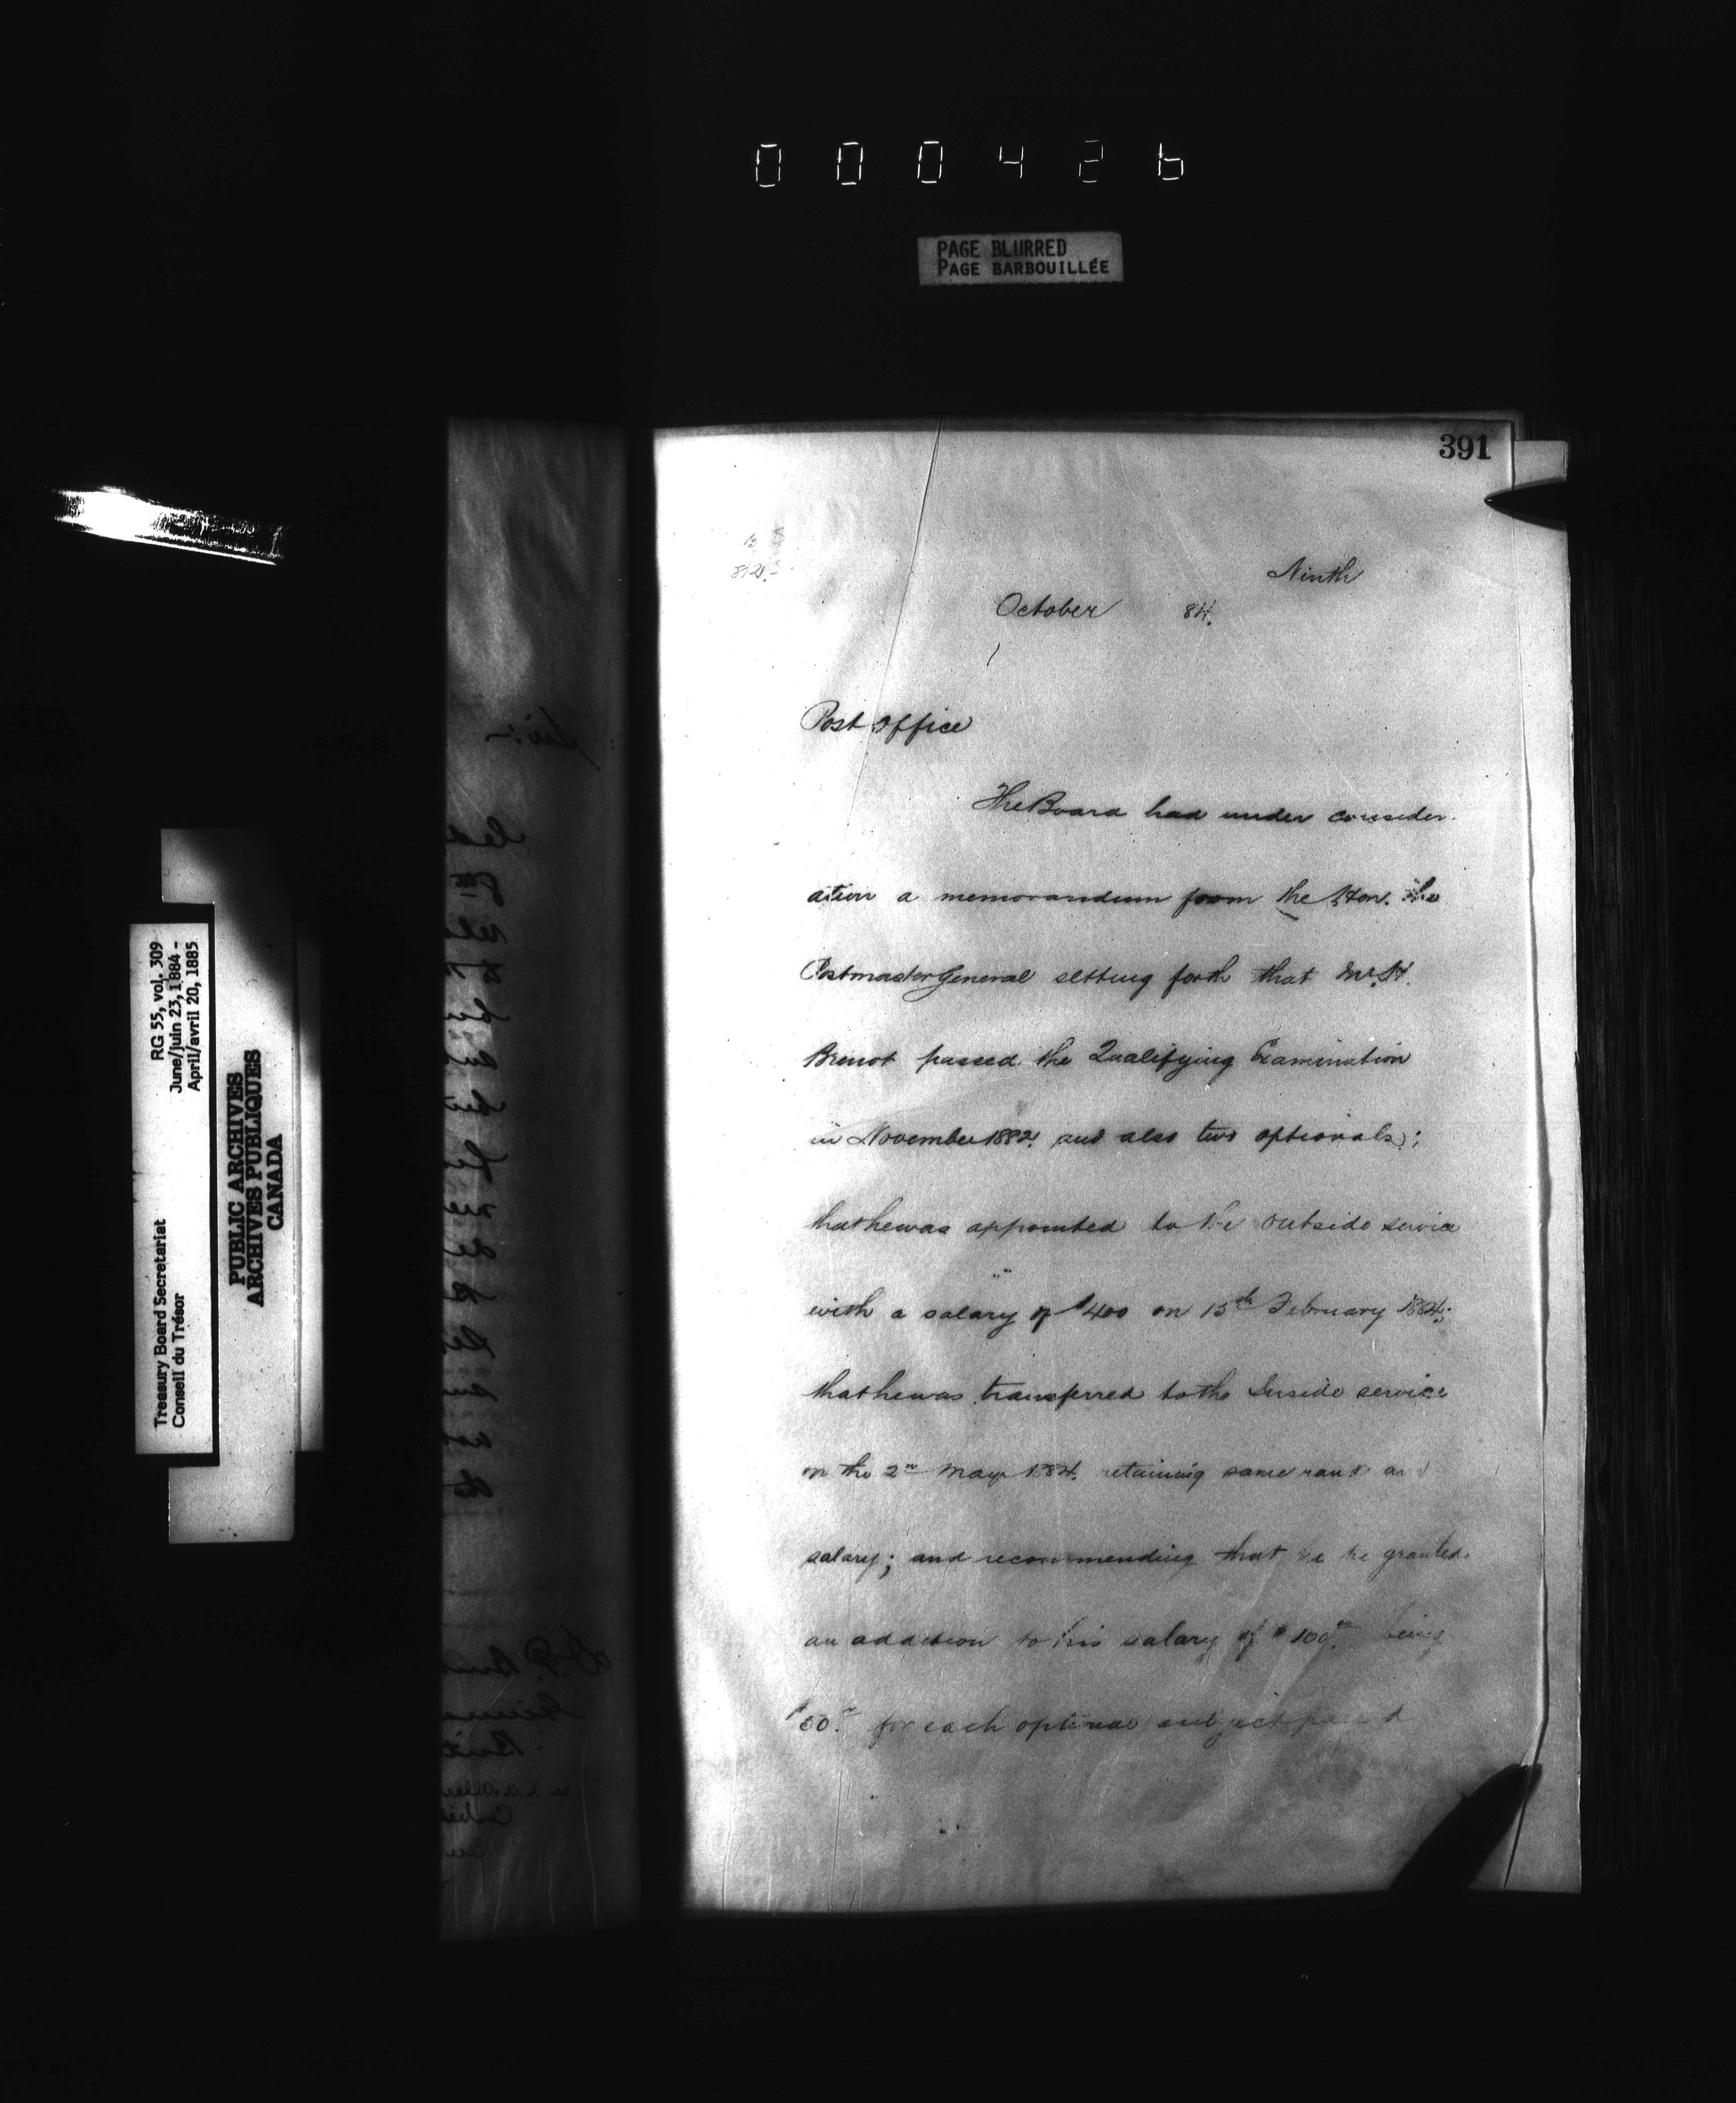 000426
PAGE BLURRED
PAGE BARBOUILLÉE
391
Ninth
October 84.
Post Office
The Board had under consider-
ation a memorandum from the Hon. the
Postmaster General setting forth that Mr. H.
Brenot passed the Qualifying Examination
in November 1882 and also two optionals;
that he was appointed to the Outside service
with a salary of $400 on 15th February 1884;
that he was transferred to the Inside service
on the 2nd May 1884, retaining same rank and
salary; and recommending that he be granted
an addition to his salary of $100. being
$50. for each optional subject passed
RG 55, vol. 309
June/juin 23, 1884 -
April/avril 20, 1885
Treasury Board Secretariat
Conseil du Trésor
PUBLIC ARCHIVES
ARCHIVES PUBLIQUES
CANADA